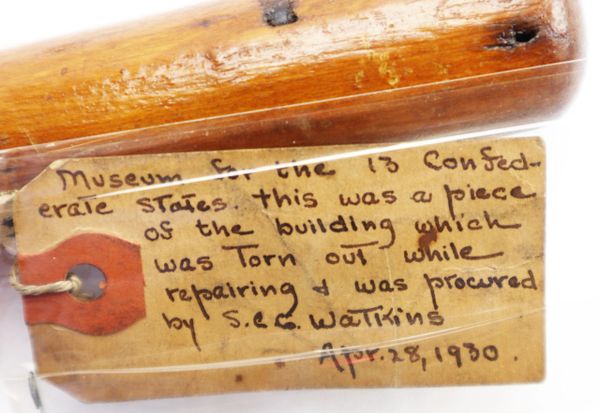 Museum for the 13 Confed-
erate states. this was a piece
of the building which
was Torn out while
repairing & was procured
by S.C.G. Watkins
Apr. 28, 1930.